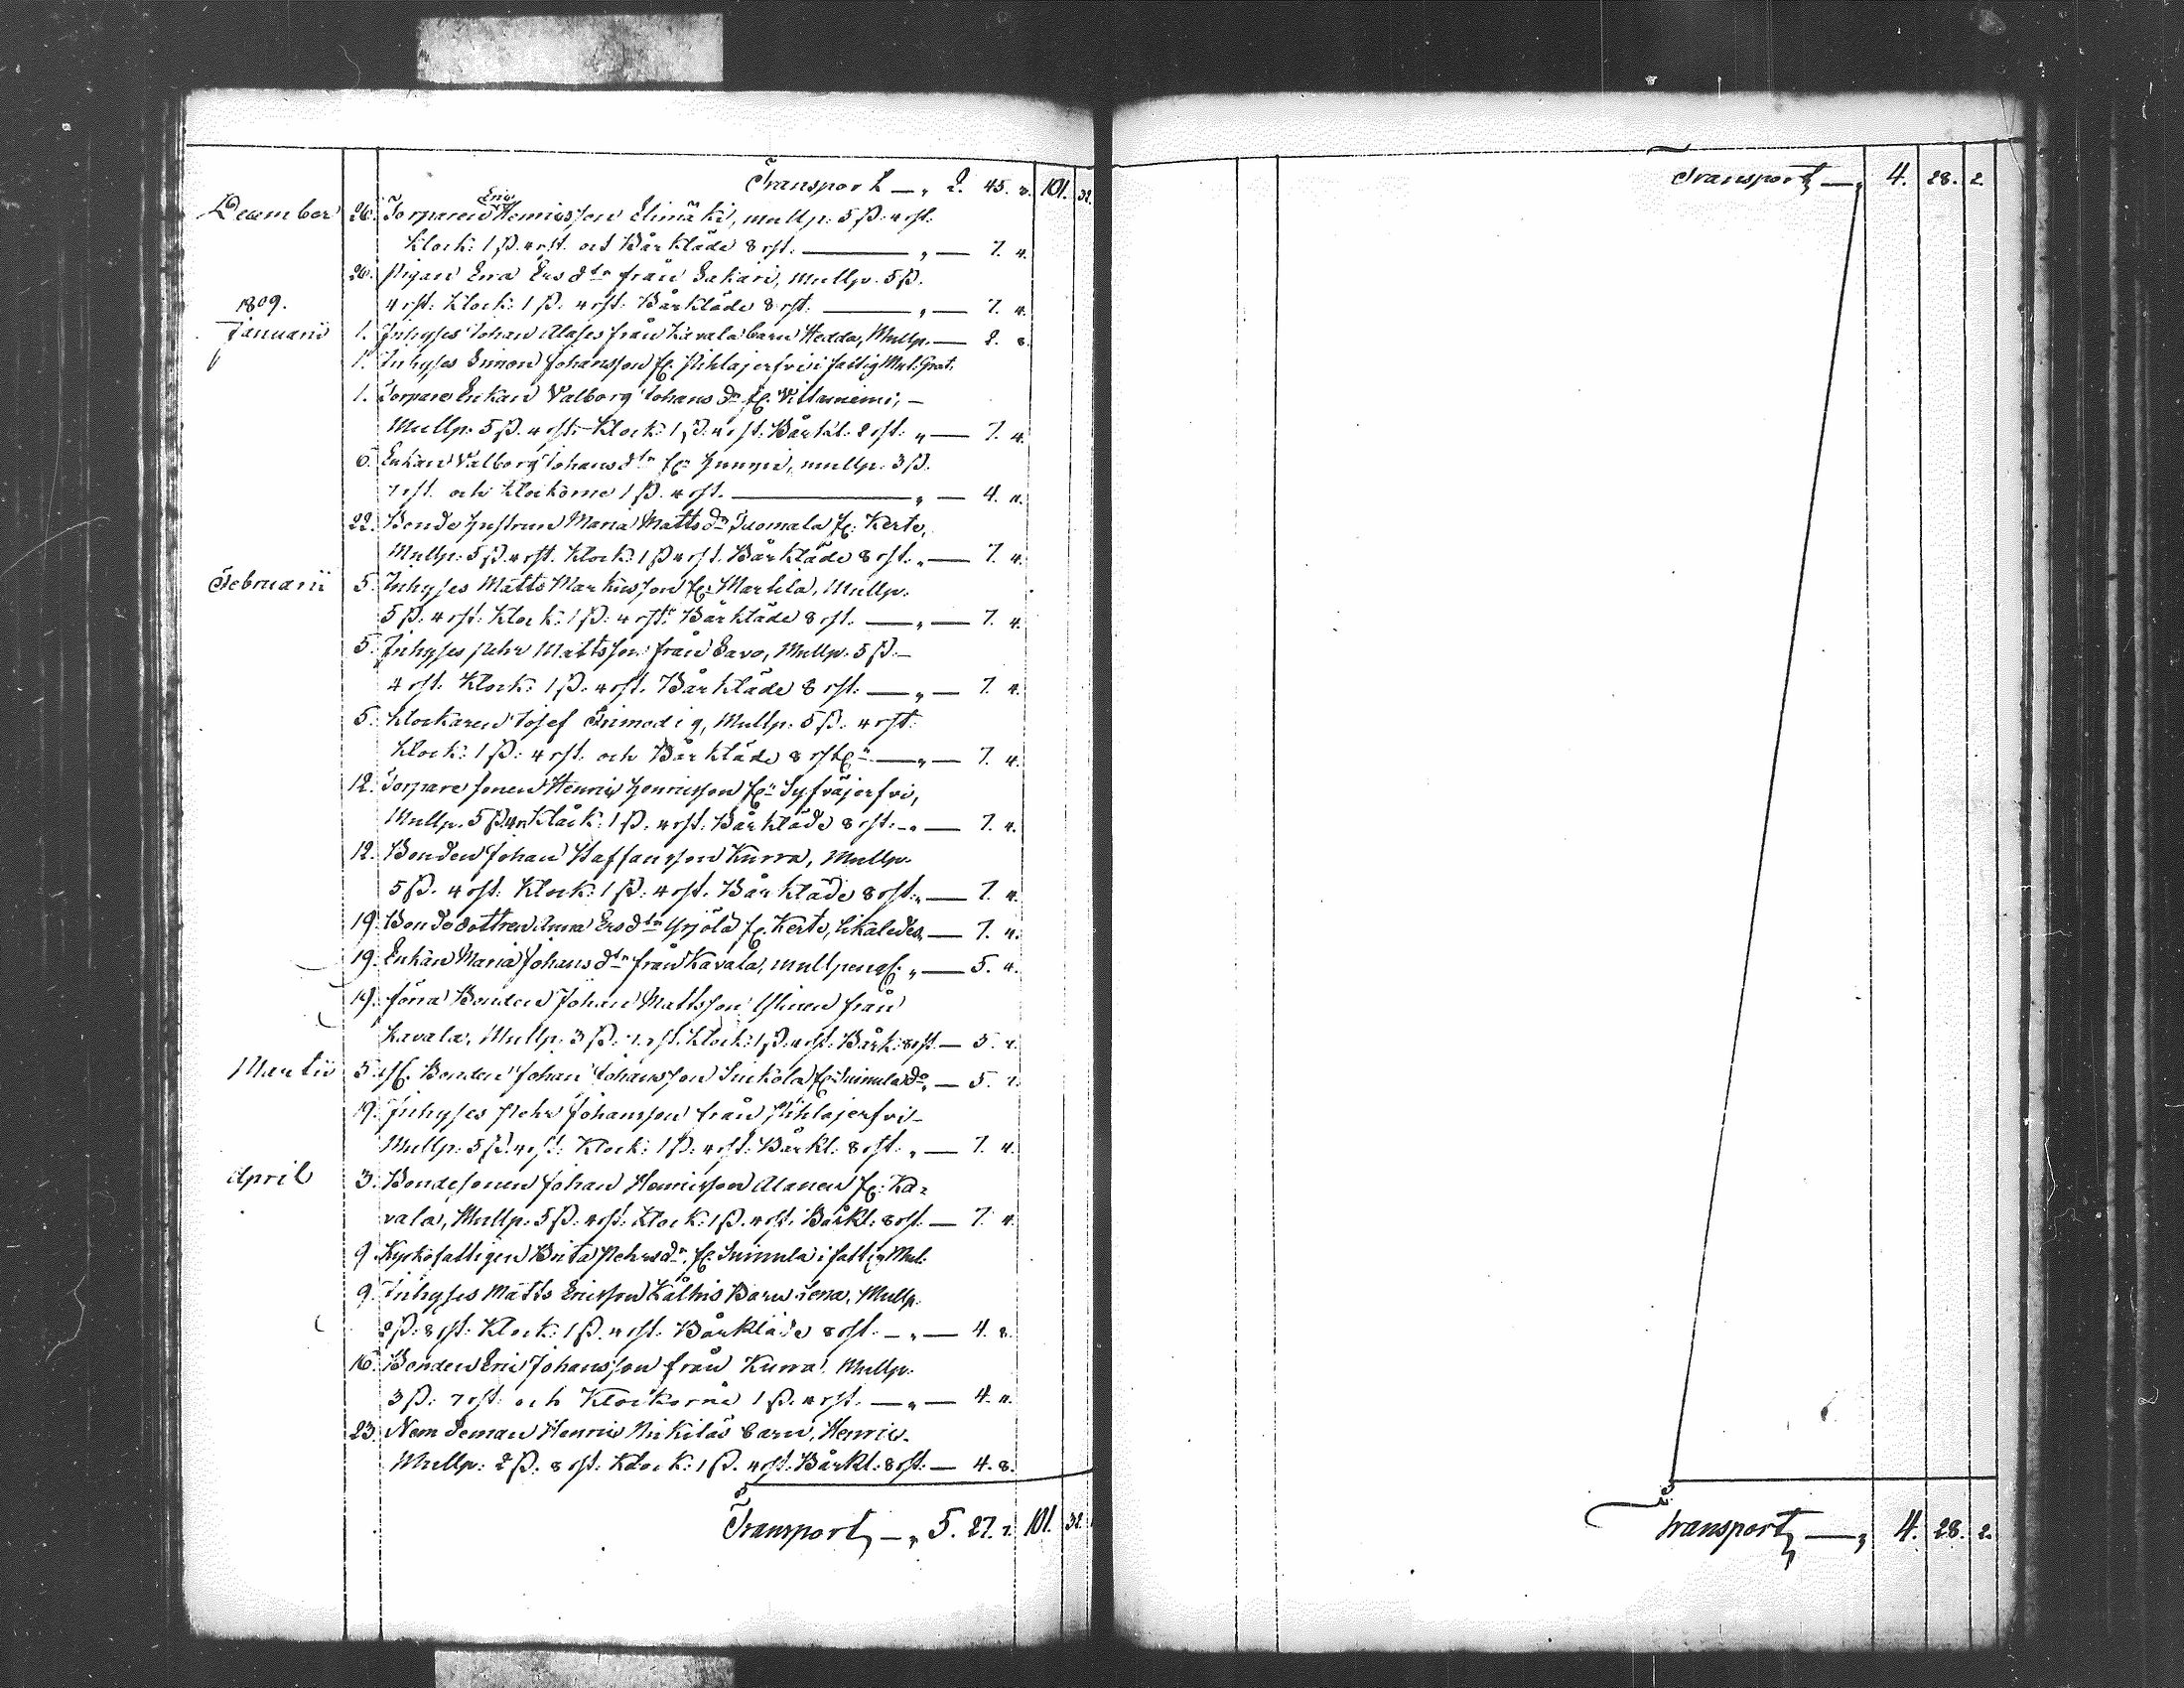 Transport — „ 2. 45. 8. 101. 32.
December 26. Torparen Eric Henricsson Elimäki, mullp: 5 ß. 4 rst.
Klock: 1 ß. 4 rst. och Bårkläde 8 rst. — „ — 7. 4.
26. Pigan Eva Ersdtr från Sakari, Mullp. 5 ß.
4 rst: Klock: 1 ß. 4 rst: Bårkläde 8 rst. — „ — 7. 4.
1809.
Januarii 1. Inhyses Johan från Kavala barn Hedda, Mullp. — 2. 8.
1. Inhyses Simon Johansson fr: Pihlajerfvi i fattig Mul: Grat.
1. Torpare Enkan Valborg Johansdr fr: —
Mullp: 5 ß. 4 rst: Klock: 1 ß. 4 rst: Bårkl: 8 rst: „ — 7. 4.
6. Enkan Valborg Johansdtr fr: mullp: 3 ß.
7 rst. och Klockorne 1 ß. 4 rst. — „ — 4. 11.
22. Bonde hustrun Maria Mattsdr Tuomala fr: Kerte,
Mullp: 5 ß. 4 rst. Klock: 1 ß 4 rst. Bårkläde 8 rst. „ — 7. 4.
Februarii 5. Inhyses Matts Markusson fr: Markla, Mullp.
5 ß. 4 rst: Klock: 1 ß: 4 rst: Bårkläde 8 rst. — „ — 7. 4.
5. Inhyses Pehr Mattsson från Savo, Mullp. 5 ß. —
4 rst. Klock: 1 ß. 4 rst. Bårkläde 8 rst. — „ — 7. 4.
5. Klockaren Josef Mullp: 5 ß. 4 rst:
Klock: 1 ß: 4 rst. och Bårkläde 8 rst — „ — 7. 4.
12. Torpare sonen Henric Henricsson fr: Syfväjerfvi,
Mullp. 5 ß 4 r Klock: 1 ß. 4 rst: Bårkläde 8 rst: — „ — 7. 4.
12. Bonden Johan Staffansson Kurra, Mullp.
5 ß. 4 rst: Klock: 1 ß: 4 rst. Bårkläde 8 rst: „ — 7. 4.
19. Bondedottren Anna Ersdtr Yrjölä fr: Kerte, likaledes — 7. 4.
19. Enkan Maria Johansdtr från Kavala, mullpengr: „ — 5. 4.
19. förra Bonden Johan Mattsson från
Kavala, Mullp: 3 ß: 7 rst. Klock: 1 ß. 4 rst: Bårk: 8 rst — 5. 7.
Martii 5. f. Bonden Johan Johansson fr: Suinula do, — 5. 7.
19. Inhyses Pehr Johansson från Pihlajerfvi —
Mullp: 5 ß. 4 rst: Klock: 1 ß: 4 rst: Bårkl: 8 rst: „ — 7. 4.
April 3. Bondesonen Johan Henricsson Alanen fr: Ka-
vala, Mullp: 5 ß: 4 rst: Klock: 1 ß. 4 rst. Bårkl: 8 rst. — 7. 4.
9. Kyrkofattigen Brita Pehrsdr. fr: Suinula i fattig Mul:
9. Inhyses Matts Ericsson Barn Lena, Mullp.
2 ß: 8 rst: Klock: 1 ß. 4 rst. Bårkläde 8 rst. — „ — 4. 8.
16. Bonden Eric Johansson från Kurra, Mullp.
3 ß: 7 rst: och Klockorna 1 ß. 4 rst. — „ — 4. 11.
23. Nemdeman Henric Nikiläs barn, Henric.
Mullp: 2 ß: 8 rst: Klock: 1 ß. 4 rst: Bårkl: 8 rst: — 4. 8.
Transport — „ 5. 27. 7. 101. 32.
Transport — „ 4. 28. 2.
Transport — „ 4. 28. 2.